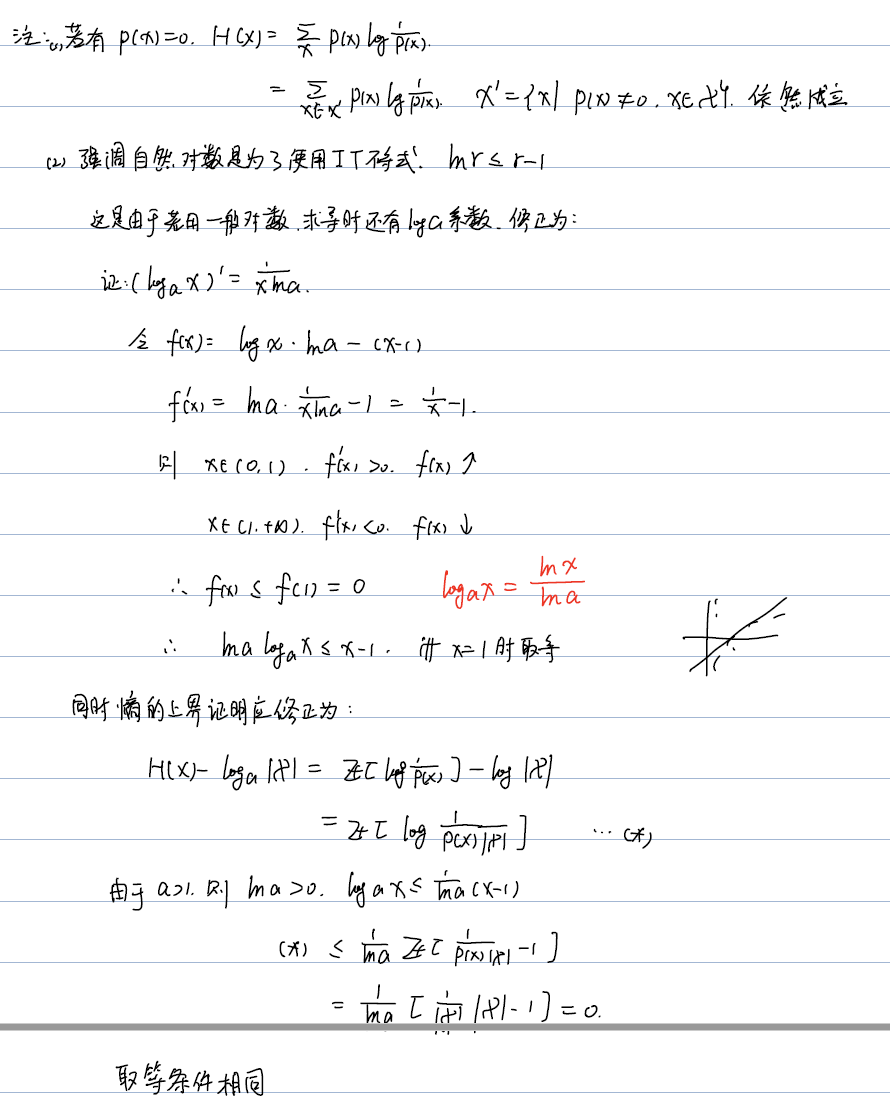 注:(1) 若有 p(x)=0. H(X)= ∑_x p(x) log 1/p(x).
= ∑_{x∈X'} p(x) log 1/p(x). X'={x| p(x)≠0, x∈X}. 依然成立
(2) 强调自然对数是为了使用IT不等式. ln r ≤ r-1
这是由于若用一般对数,求导时还有log a系数. 修正为:
证:(log_a x)' = 1/(x ln a).
令 f(x)= log x · ln a - (x-1)
f'(x) = ln a · 1/(x ln a) - 1 = 1/x - 1.
则 x∈(0,1). f'(x)>0. f(x)↑
x∈(1,+∞). f'(x)<0. f(x)↓
∴ f(x) ≤ f(1) = 0 log_a x = ln x / ln a
∴ ln a log_a x ≤ x-1. 当 x=1时取等
同时熵的上界证明应修正为:
H(X) - log_a |X| = E[log 1/p(x)] - log |X|
= E[ log 1/(p(x)|X|) ] ... (*)
由于 a>1. 则 ln a>0. log_a x ≤ 1/ln a (x-1)
(*) ≤ 1/ln a E[ 1/(p(x)|X|) - 1 ]
= 1/ln a [ 1/|X| |X| - 1 ] = 0.
取等条件相同